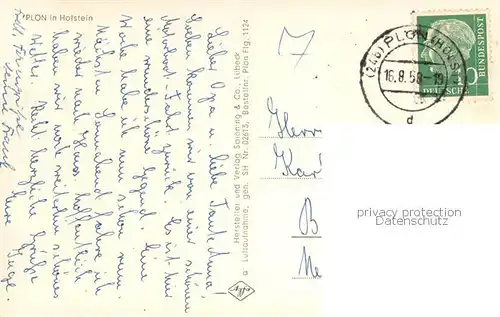 PLÖN in Holstein
Lieber Opa u. liebe Tante Anna!
Soeben kommen wir von einer schönen
Motorboot-Fahrt zurück. Es ist hier
eine wunderschöne Gegend. Eine
Woche habe ich nun schon rum.
Nächsten Sonnabend fahre ich
wieder nach Haus. Hoffentlich
haben wir noch weiterhin schönes
Wetter. Recht herzliche Grüße
Eure
Inge.
Hersteller und Verlag Schöning & Co., Lübeck
Luftaufnahme, gen. SH Nr. 02615, Bestellnr. Plön Flg. 1124
Agfa
(24b) PLÖN (HOLST)
16.8.58-19
d
DEUTSCHE
BUNDESPOST
10
Herrn
Kar
B
privacy protection
Datenschutz